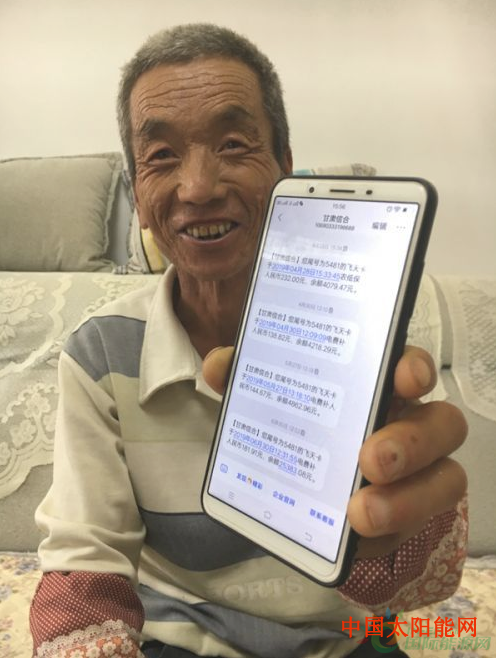 15:56
甘肃信合
编辑
【甘肃信合】您尾号为5481的飞天卡
于2019年04月28日15:33:45农低保
人民币232.00元，余额4079.47元。
【甘肃信合】您尾号为5481的飞天卡
于2019年04月30日12:09:09电费补
人民币136.82元，余额4216.29元。
【甘肃信合】您尾号为5481的飞天卡
于2019年05月27日13:18:10电费补人
民币144.67元，余额4962.96元。
【甘肃信合】您尾号为5481的飞天卡
于2019年06月30日12:31:55电费补
人民币181.91元，余额25383.08元。
企业官网
联系客服
SPORTS
中国太阳能网